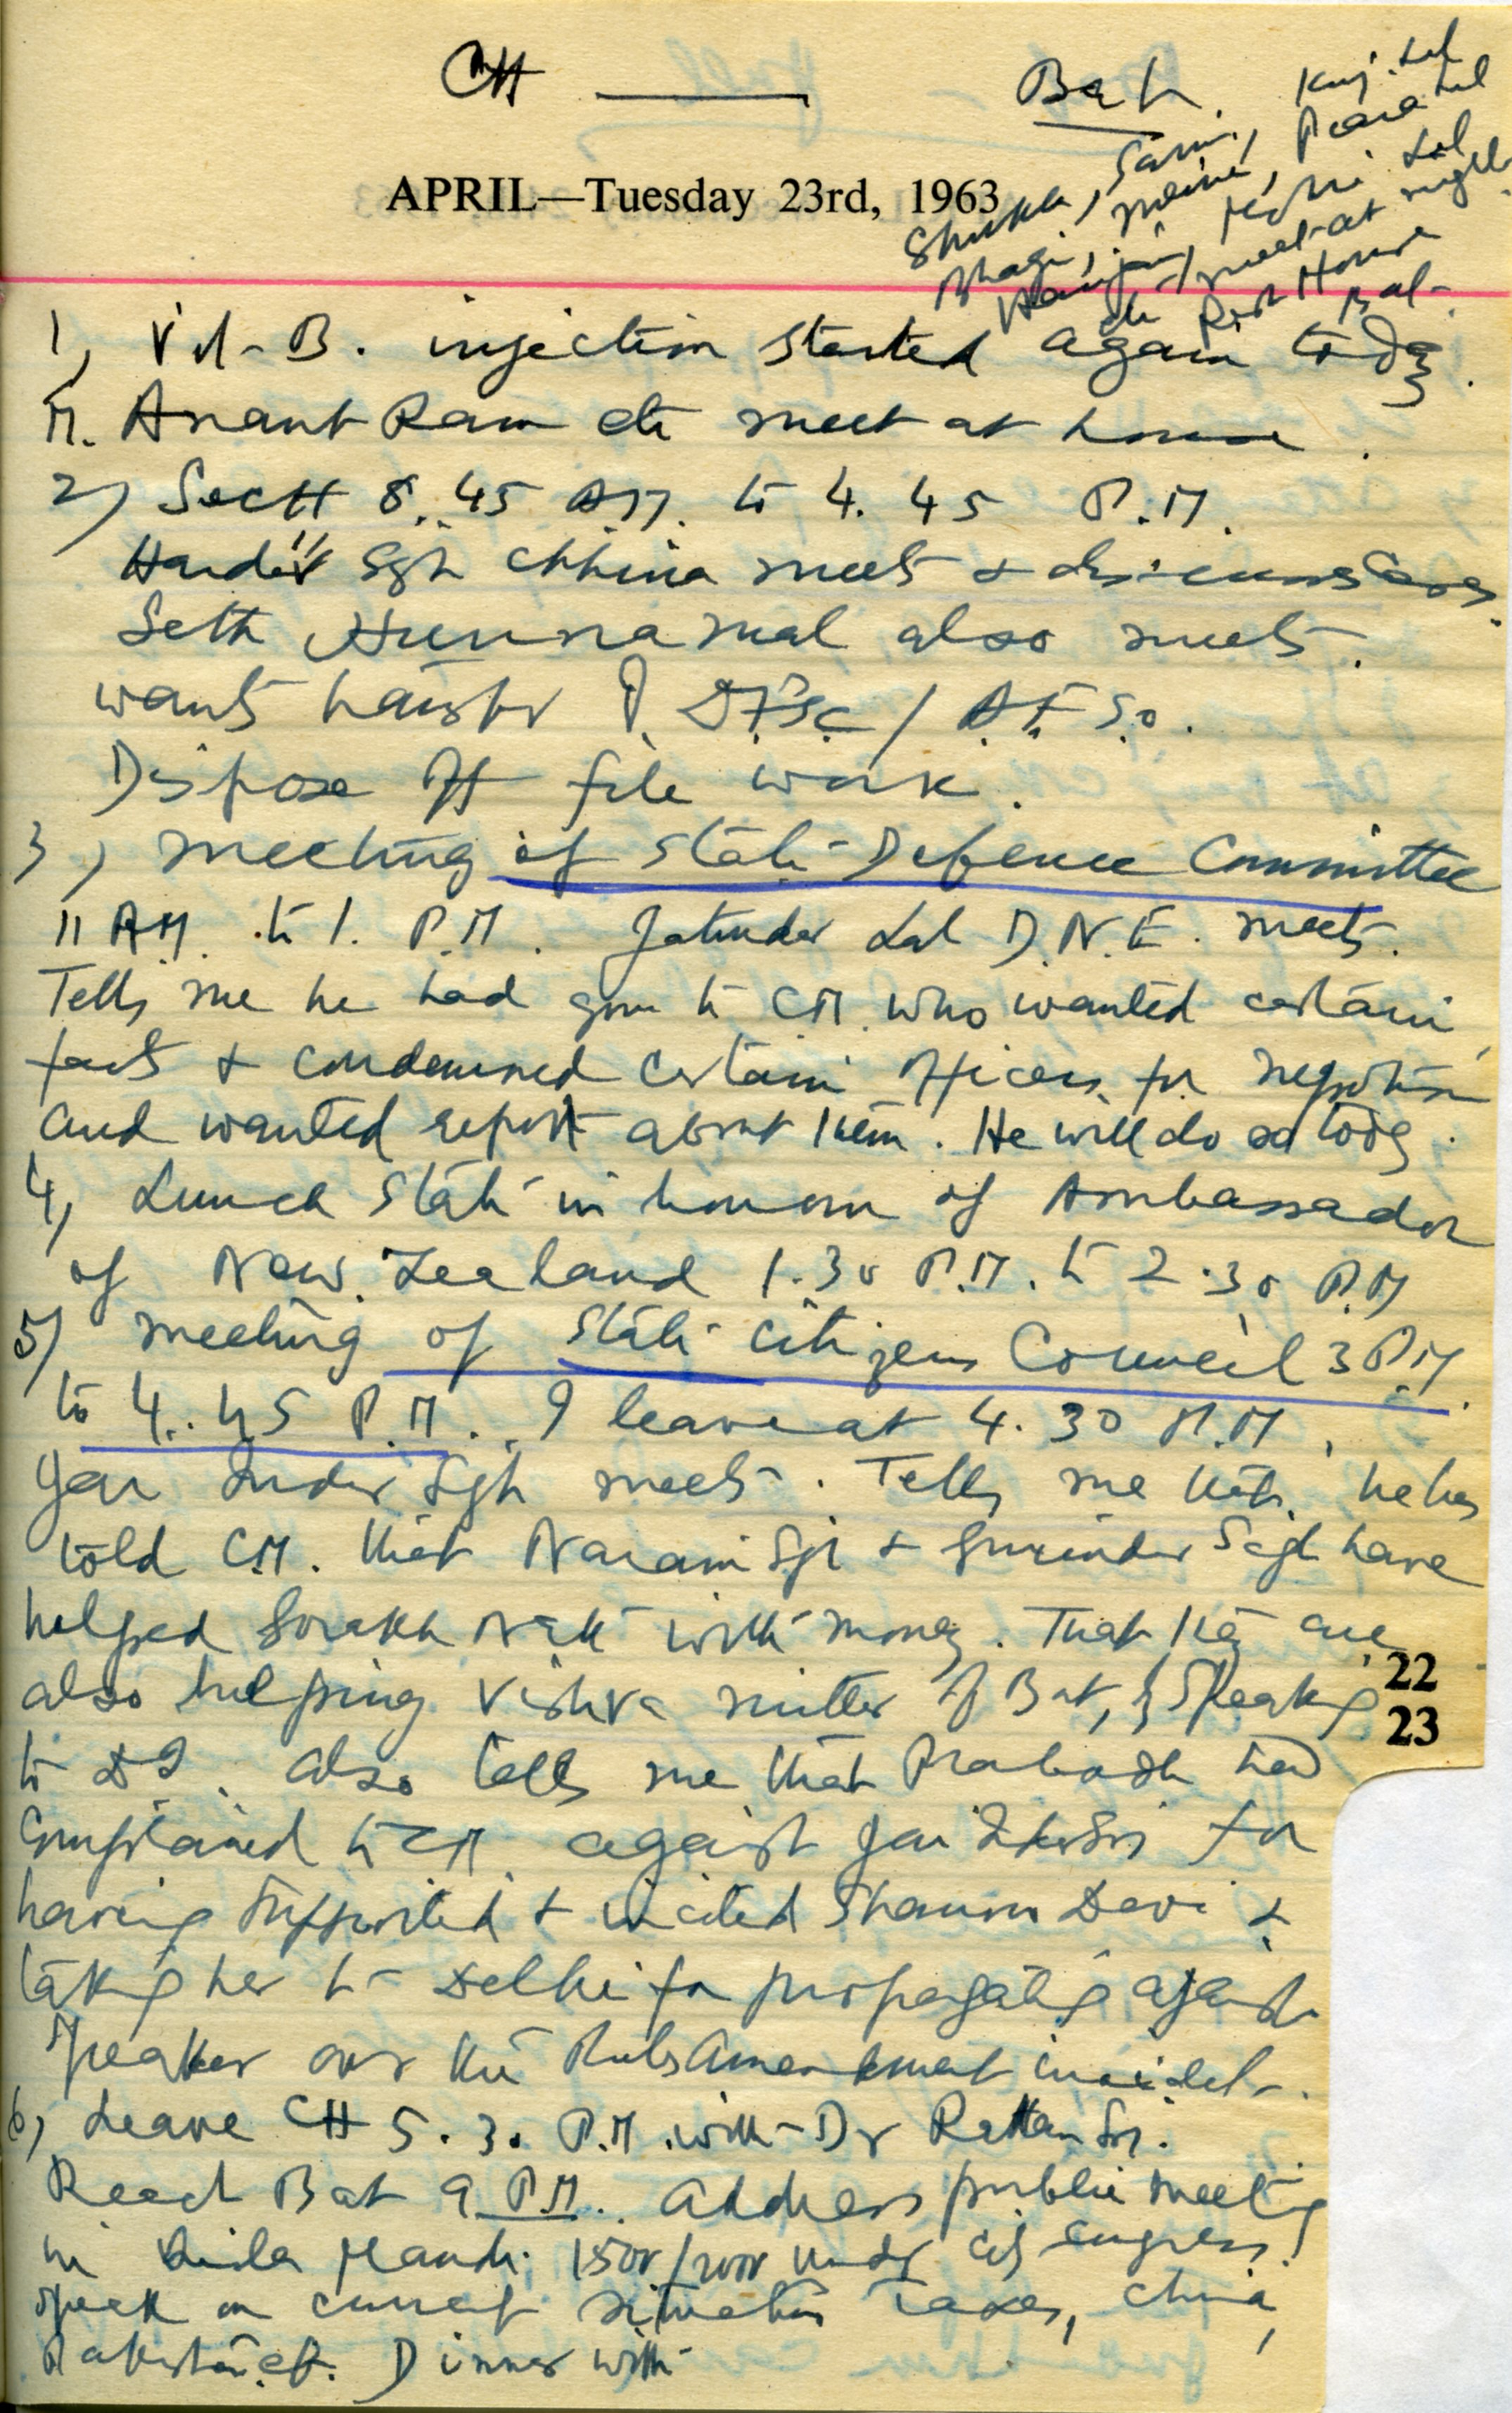 CH ——— Bat.
APRIL—Tuesday 23rd, 1963
Shukla, Sami, Kunj Lal
Bhagi, Maini, Peara Lal
Harijan, Mohni Lal
etc meet at night
Rest House
Bat.
1) Vit-B. injection started again today.
M. Anant Ram etc meet at house.
2) Sectt 8.45 A.M. to 4.45 P.M.
Hardit Sgh Chhina meets & discusses cases.
Seth mal also meets.
wants transfer of DFSC / A.F.S.O.
Dispose off file work.
3) Meeting of State Defence Committee
11 AM. to 1. P.M. Jatinder Lal D.N.E. meets.
Tells me he had gone to CM. who wanted certain
facts & condemned certain officers for
and wanted report about them. He will do so today.
4) Lunch State in honour of Ambassador
of New Zealand 1.30 P.M. to 2.30 P.M
5) Meeting of State Citizens Council 3 P.M.
to 4.45 P.M. I leave at 4.30 P.M.
Jai Inder Sgh meets. Tells me that he has
told C.M. that Narain Sgh & Gurinder Sgh have
helped Gorakh Nath with money. That they are
also helping Vishva Mitter of Bat, by Speaking
22
23
to D I. Also tells me that Prabodh had
Complained to CM. against Jai Inder Sgh for
having supported & incited Shanno Devi &
taking her to Delhi for propagating against
Speaker over the Rules Amendment incident.
6) Leave CH 5.30 P.M. with Dr Rattan Sgh.
Reach Bat 9 P.M. Address public meeting
in Mandi 1500/2000 under City Congress.
Speak on current situation Taxes, China,
Pakistan etc. Dinner with